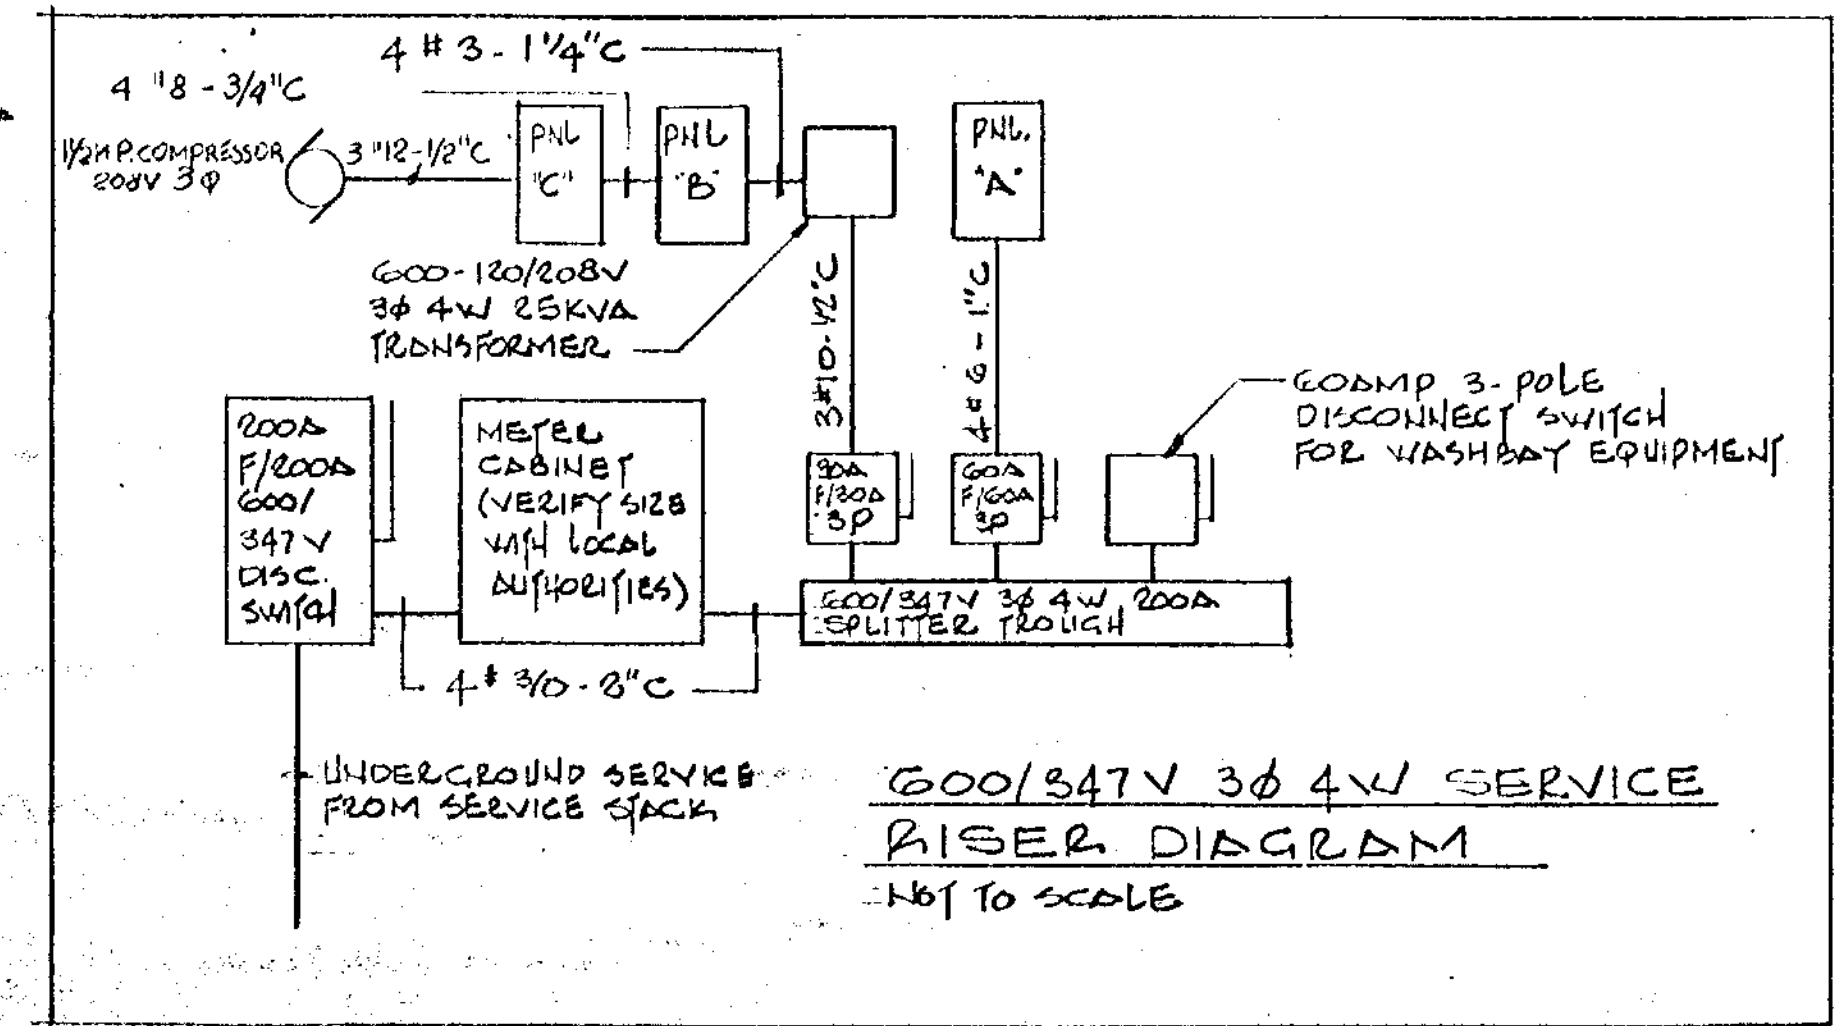 4 # 3 - 1 1/4"C
4 "8 - 3/4"C
1 1/2 H.P. COMPRESSOR
208V 3Φ
3 "12-1/2"C
PNL
"C"
PNL
"B"
PNL.
"A"
600-120/208V
3φ 4W 25KVA
TRANSFORMER
3#10-1/2"C
4#6-1"C
60AMP 3-POLE
DISCONNECT SWITCH
FOR WASHBAY EQUIPMENT
200A
F/200A
600/
347V
DISC.
SWITCH
METER
CABINET
(VERIFY SIZE
WITH LOCAL
AUTHORITIES)
30A
F/30A
3P
60A
F/60A
3P
600/347V 3φ 4W 200A
SPLITTER TROUGH
4# 3/0-2"C
UNDERGROUND SERVICE
FROM SERVICE STACK
600/347V 3φ 4W SERVICE
RISER DIAGRAM
NOT TO SCALE